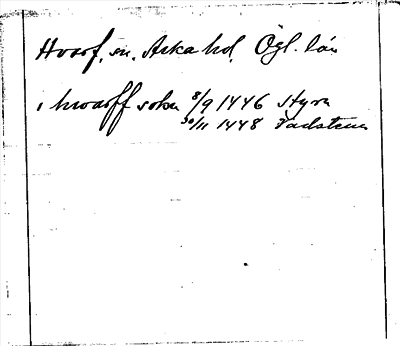 Hvarf, sn, Aska hd, Ögl. län
i hwarff sokn 8/9 1446 Styra
30/11 1448 Vadstena